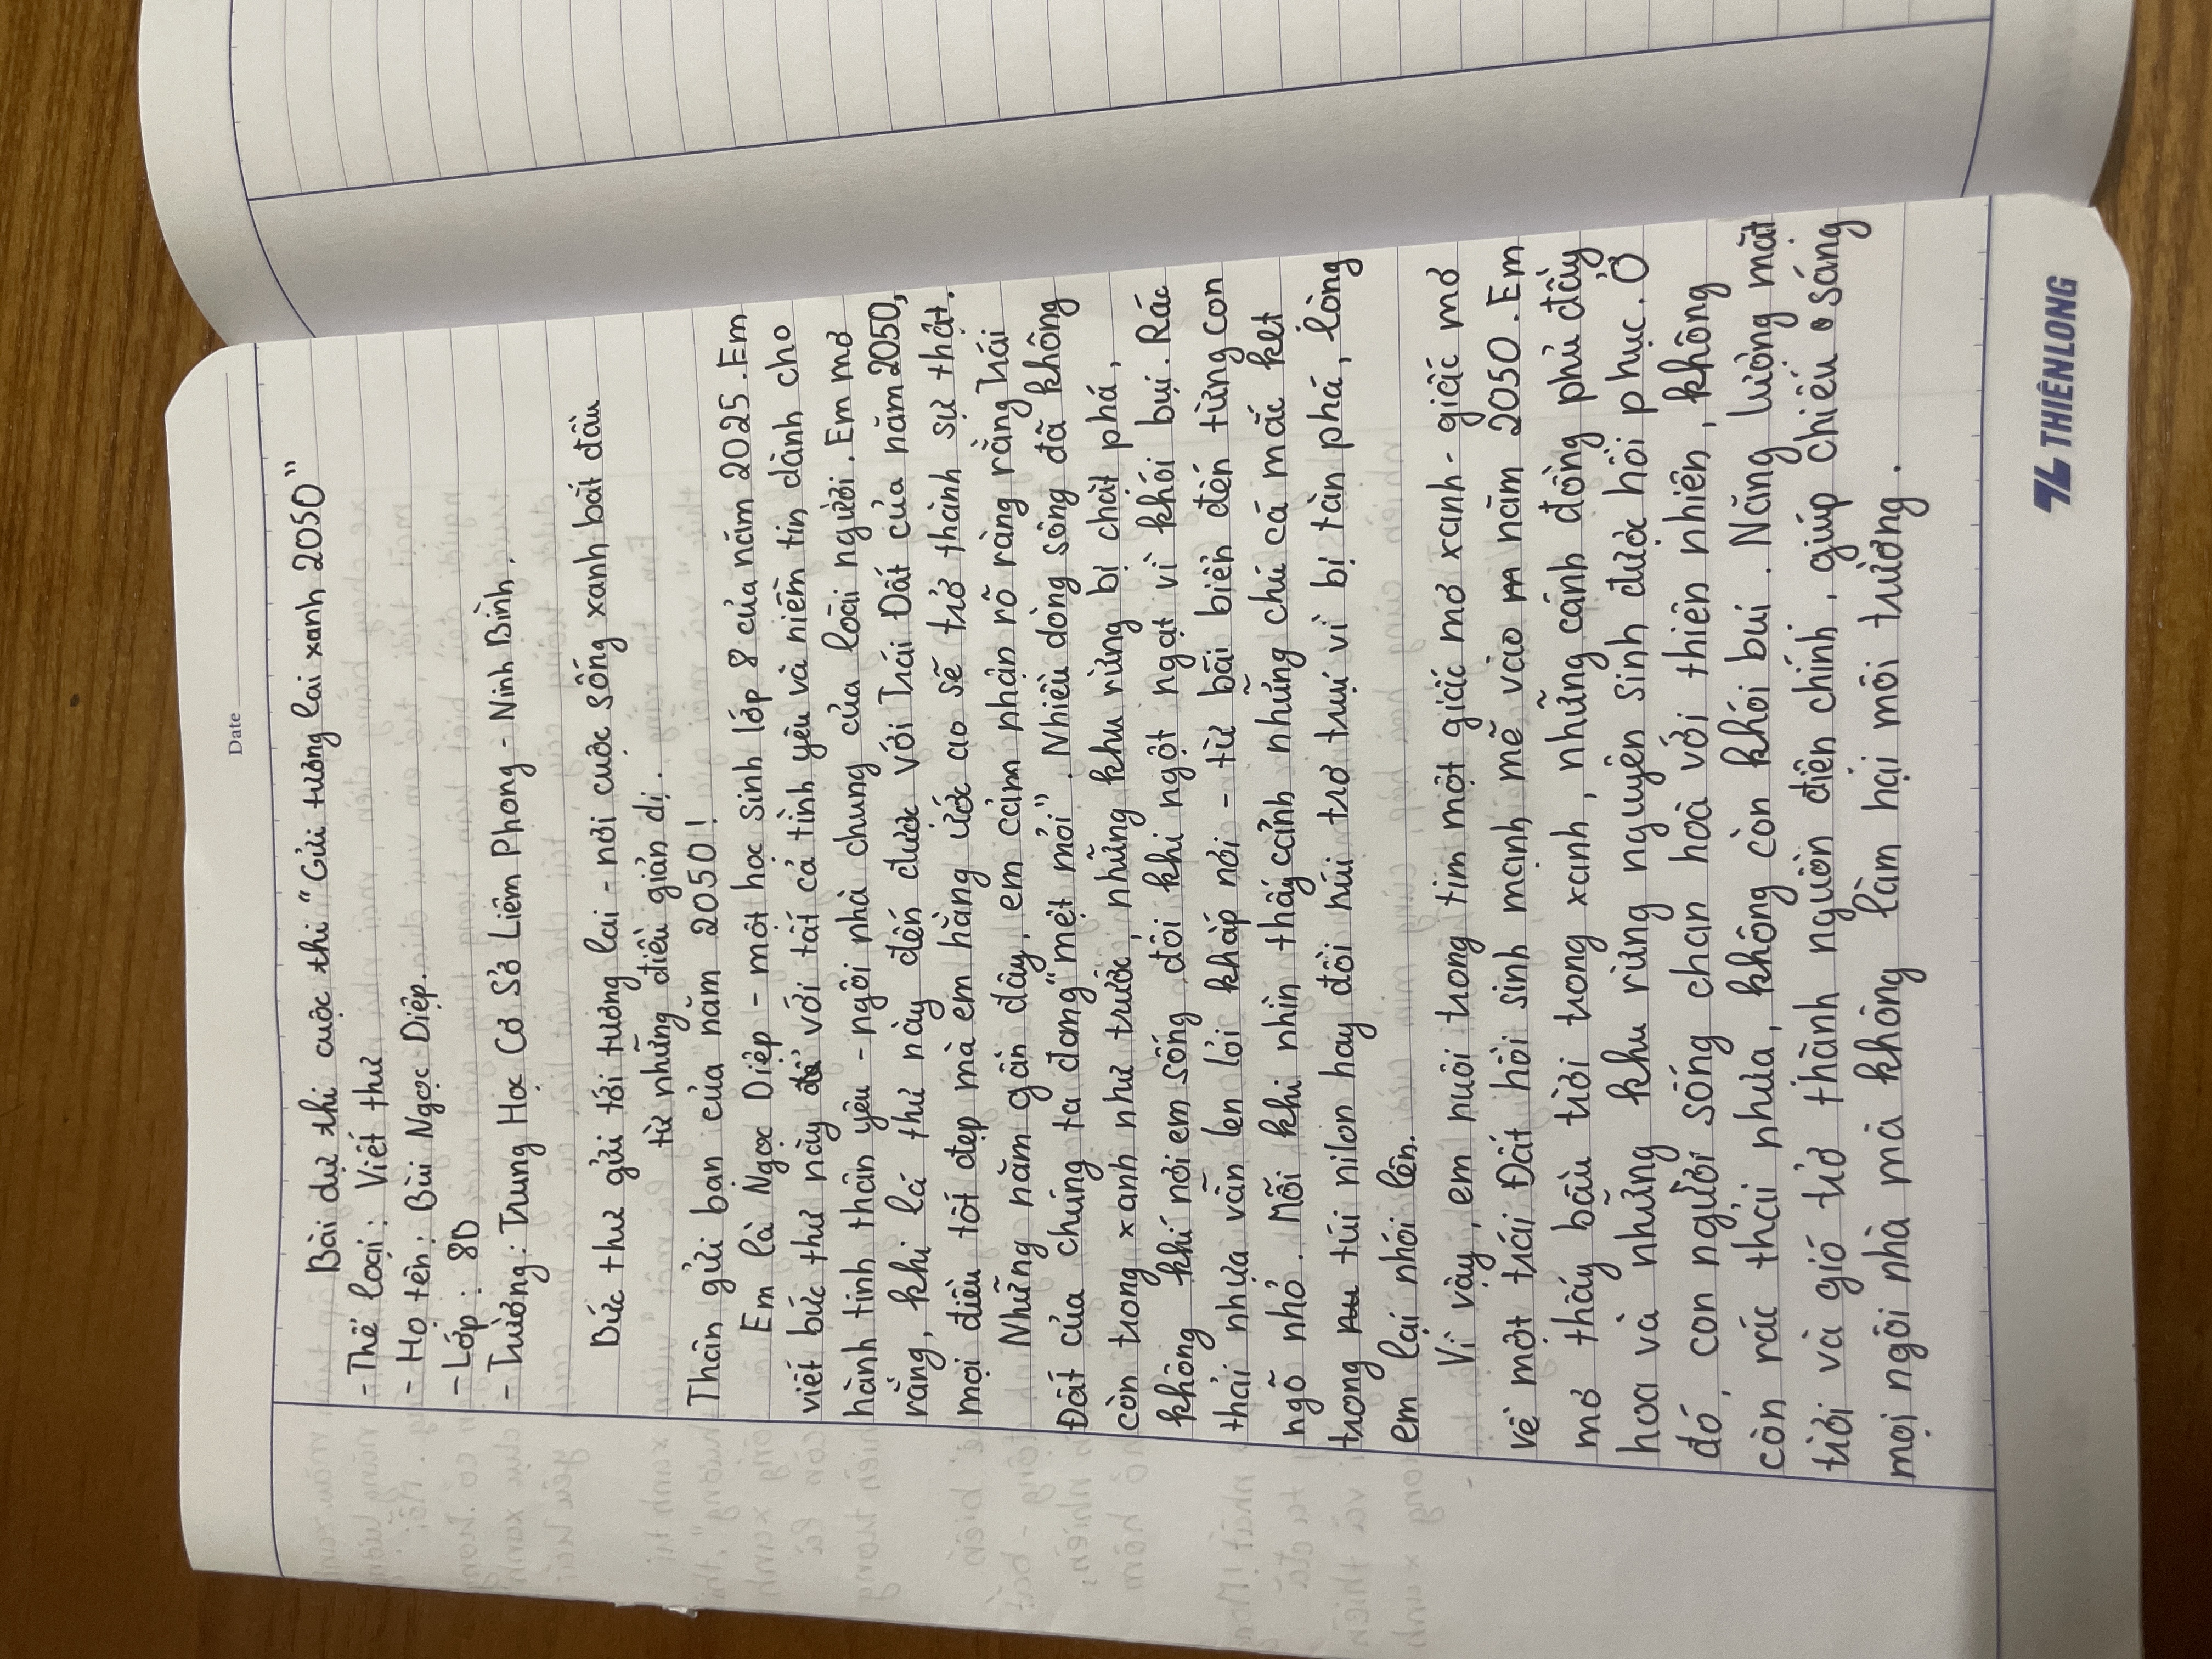 Date
Bài dự thi cuộc thi "Gửi tương lai xanh 2050"
- Thể loại: Viết thư
- Họ tên: Bùi Ngọc Diệp.
- Lớp: 8D
- Trường: Trung Học Cơ Sở Liêm Phong - Ninh Bình.
Bức thư gửi tới tương lai - nơi cuộc sống xanh bắt đầu
từ những điều giản dị.
Thân gửi bạn của năm 2050!
Em là Ngọc Diệp - một học sinh lớp 8 của năm 2025. Em
viết bức thư này với tất cả tình yêu và niềm tin dành cho
hành tinh thân yêu - ngôi nhà chung của loài người. Em mơ
rằng, khi lá thư này đến được với Trái Đất của năm 2050,
mọi điều tốt đẹp mà em hằng ước ao sẽ trở thành sự thật.
Những năm gần đây, em cảm nhận rõ ràng rằng Trái
Đất của chúng ta đang "mệt mỏi". Nhiều dòng sông đã không
còn trong xanh như trước, những khu rừng bị chặt phá,
không khí nơi em sống đôi khi ngột ngạt vì khói bụi. Rác
thải nhựa vẫn len lỏi khắp nơi - từ bãi biển đến từng con
ngõ nhỏ. Mỗi khi nhìn thấy cảnh những chú cá mắc kẹt
trong túi nilon hay đồi núi trơ trụi vì bị tàn phá, lòng
em lại nhói lên.
Vì vậy, em nuôi trong tim một giấc mơ xanh - giấc mơ
về một trái Đất hồi sinh mạnh mẽ vào năm 2050. Em
mơ thấy bầu trời trong xanh, những cánh đồng phủ đầy
hoa và những khu rừng nguyên sinh được hồi phục. Ở
đó, con người sống chan hoà với thiên nhiên, không
còn rác thải nhựa, không còn khói bụi. Năng lượng mặt
trời và gió trở thành nguồn điện chính, giúp chiếu sáng
mọi ngôi nhà mà không làm hại môi trường.
THIÊN LONG